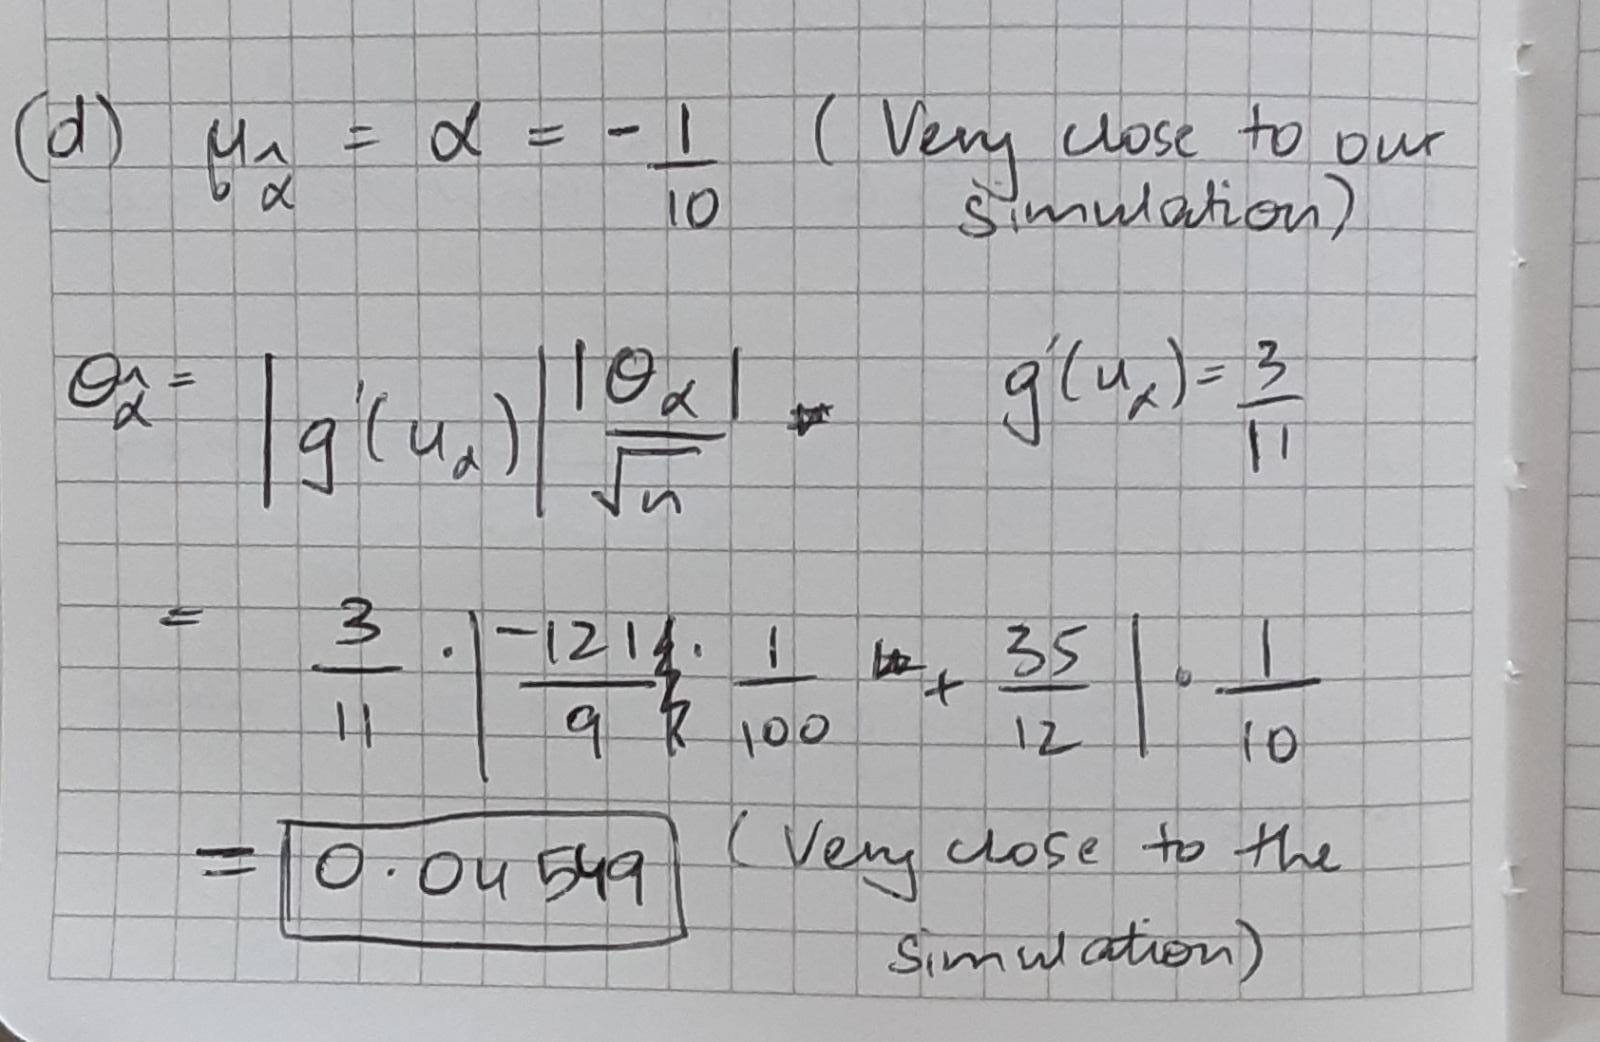 (d) μ_α̂ = α = -1/10 (Very close to our
simulation)
σ_α̂ = |g'(u_α)| |σ_α|/√n g'(u_α) = 3/11
= 3/11 · |-121/9 · 1/100 + 35/12| · 1/10
= 0.04549 (Very close to the
simulation)